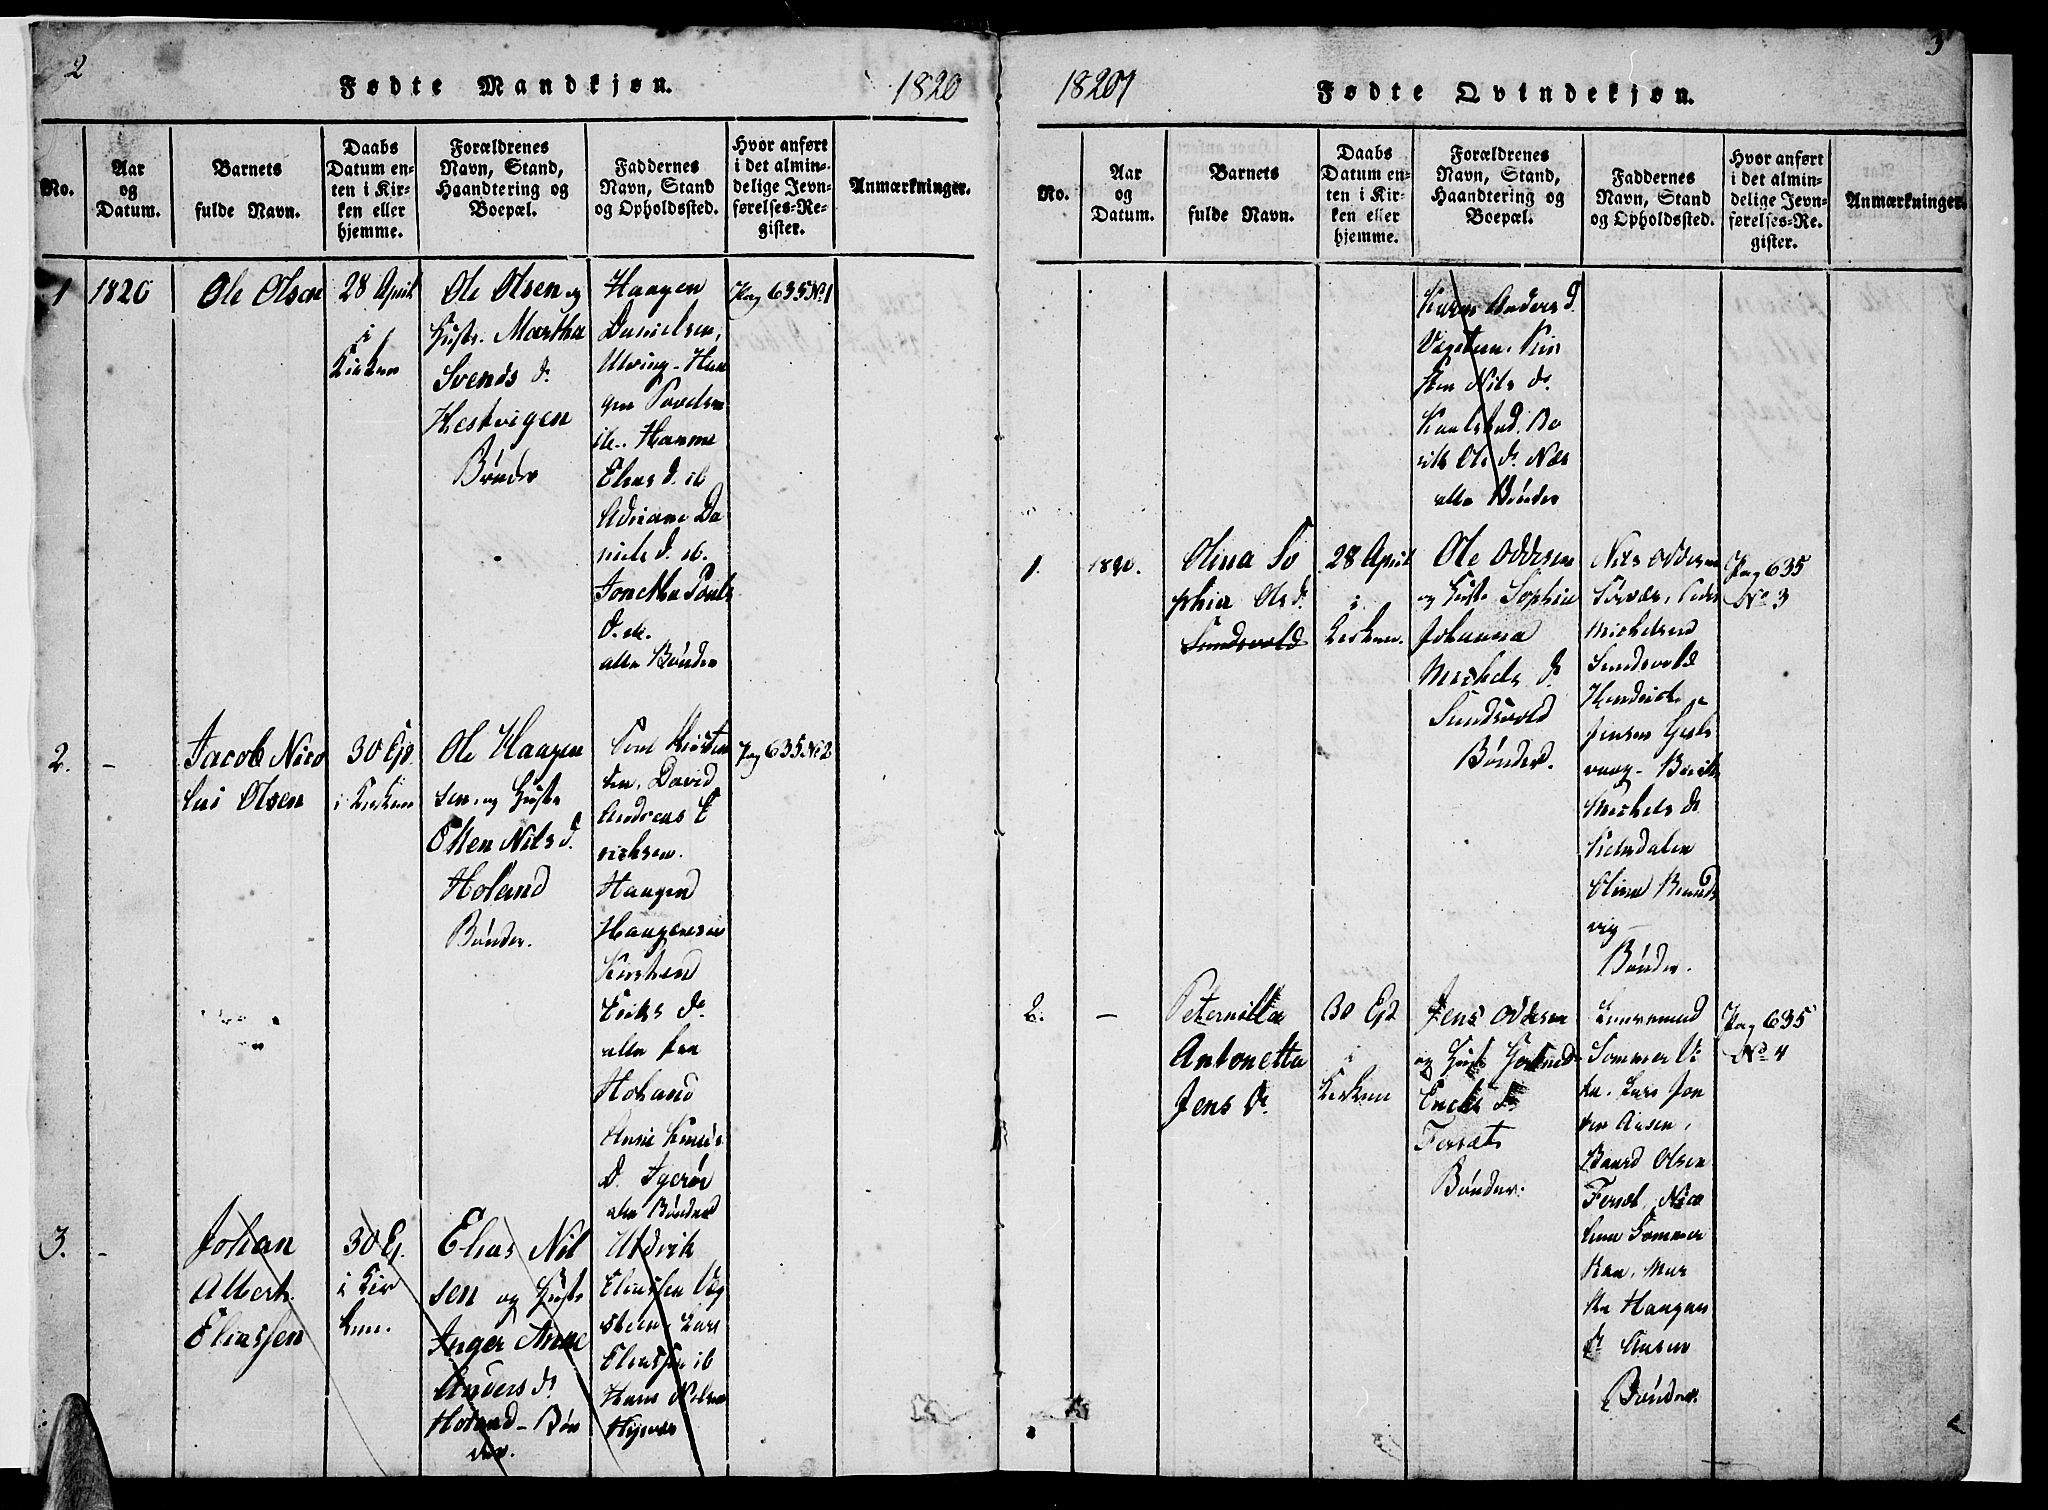 2
Fødte Mandkjøn.
1820
No.
Aar
og
Datum.
Barnets
fulde Navn.
Daabs
Datum en-
ten i Kir-
ken eller
hjemme.
Forældrenes
Navn, Stand,
Haandtering og
Boepæl.
Faddernes
Navn, Stand
og Opholdssted.
Hvor anført
i det almin-
delige Jevn-
førelses-Re-
gister.
Anmærkninger.
1
1820
Ole Olsen
28 April
i
Kirken
Ole Olsen og
Hustr. Martha
Svends d.
Hestvigen
Bønder
Haagen
Danielsen,
Ulving - Han
Povelsen
ib. Hanna
Elias d. ib
Adriane Da
niels d. ib.
Jonetha Povels
d. ib.
alle Bønder
Pag 635 No 1
2.
-
Jacob Nico
lai Olsen
30 Ejd.
i Kirken
Ole Haagen
sen og Hustr
Ellen Nils d.
Holand
Bønder.
David
Andreas E
richsen.
Haagen
Haagensen
Kirsten
Eriks d.
alle fra
Holand
D. Igerøe
alle Bønder
Pag 635 No 2
3.
-
Johan
Albert
Eliassen
30 Ej.
i Kir
ken.
Elias Nil
sen og Hustr
Inger Anne
Anders d.
Holand - Bøn
der.
Eliassen Væg
steen. Lars
Eliassen ib
Hans Nilsen
3
1820
Fødte Qvindekjøn.
No.
Aar
og
Datum.
Barnets
fulde Navn.
Daabs
Datum en-
ten i Kir-
ken eller
hjemme.
Forældrenes
Navn, Stand,
Haandtering og
Boepæl.
Faddernes
Navn, Stand
og Opholdssted.
Hvor anført
i det almin-
delige Jevn-
førelses-Re-
gister.
Anmærkninger.
Karen Anders d.
Vægsteen. Kir
sten Nils d.
Be
rith Ols d. Næs
alle Bønder
1.
1820.
Olina So
phia Ols d.
Sundsvold
28 April
i
Kirken.
Ole Oddesen
og Hustr Sophia
Johanna
Michels d.
Sundsvold
Bønder.
Nils Oddesen
Sørvær, Peder
Michelsen
Sundsvold
Hendrich
Jensen
vaag - Berith
Michels d.
Olina Brunds
vig -
Bønder.
Pag 635
No 3
2.
-
Peternilla
Antonetta
Jens d.
30 Ejd
i
Kirken
Jens Oddesen
og Hustr
d.
Forsæt
Bønder.
Sommer
Lars Jon
sen Aasen.
Baard Olsen
Forsæt, Nico
lina Sommer
Mar
the Haagens
d. Aasen
Bønder.
Pag 635
No 4